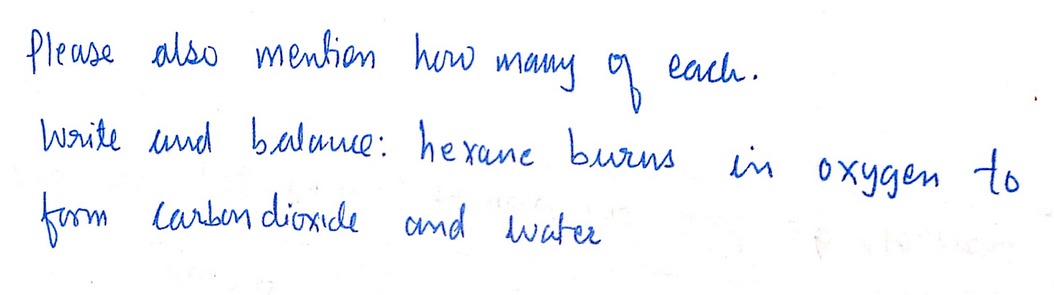 Please also mention how many of each.
Write and balance: hexane burns in oxygen to
form carbon dioxide and water